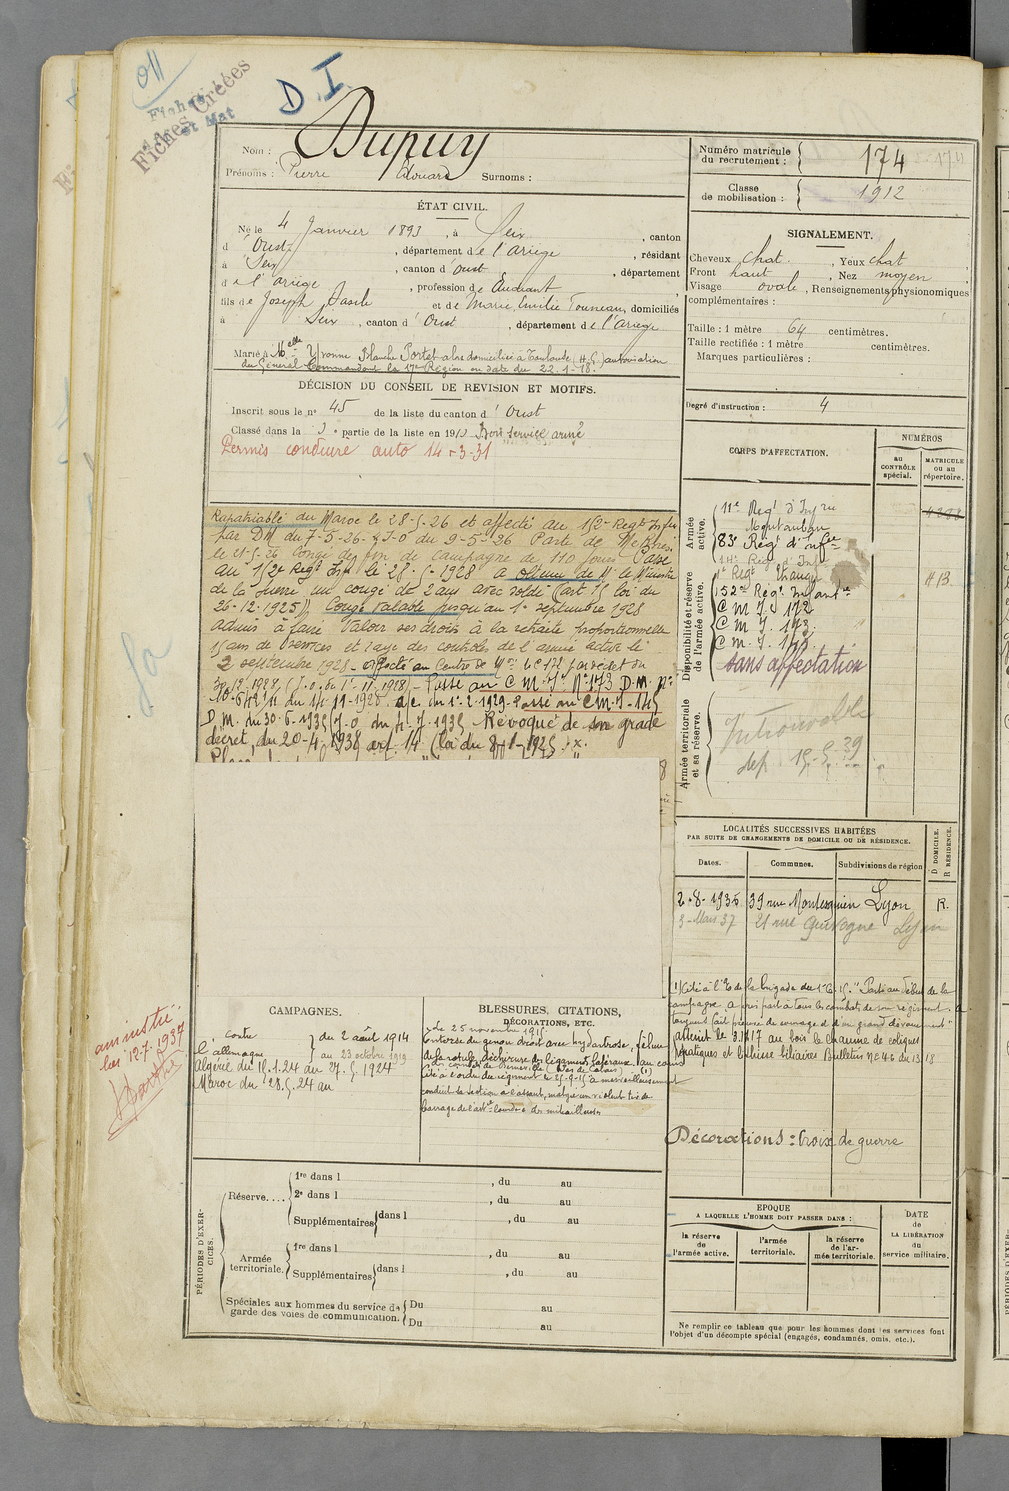 D.I.
Fiches Créées
Nom : Dupuy
Prénoms : Pierre Edouard Surnoms :
Numéro matricule du recrutement : 174
Classe de mobilisation : 1912
ÉTAT CIVIL.
Né le 4 Janvier 1893, à Seix, canton
d'Oust, département de l'Ariège, résidant
à Seix, canton d'Oust, département
de l'Ariège, profession de Etudiant
fils de Joseph Basile et de Marie Emilie Tonneau, domiciliés
à Seix, canton d'Oust, département de l'Ariège
Marié à Melle Yvonne Blanche Portet domiciliée à Toulouse (H.G.) autorisation
du Général Commandant la 17e Région en date du 22-1-18.
SIGNALEMENT.
Cheveux chat., Yeux chat
Front haut, Nez moyen
Visage ovale, Renseignements physionomiques
complémentaires :
Taille : 1 mètre 64 centimètres.
Taille rectifiée : 1 mètre centimètres.
Marques particulières :
Degré d'instruction : 4
DÉCISION DU CONSEIL DE REVISION ET MOTIFS.
Inscrit sous le n° 45 de la liste du canton d'Oust
Classé dans la partie de la liste en 1913 Bon service armé
Permis conduire auto 14-3-31
Rapatriable du Maroc le 28-5-26 et affecté au 152e Regt Infie
par DM du 7-5-26 J-O du 9-5-26 Parti de Meknès
le 21-5-26 Congé de fin de campagne de 110 jours Passé
au 152e Regt Infie le 28- -1928 a obtenu de Mr le Ministre
de la Guerre un congé de 2 ans avec solde (art 15 loi du
26-12-1925). Congé valable jusqu'au 1er septembre 1928
admis à faire valoir ses droits à la retraite proportionnelle
15 ans de services et rayé des contrôles de l'armée active le
2 septembre 1928 - affecté au Centre de Mon I de 171 par décret du
(J.o. du 1er-11-1928) - Passé au C M I N°173 D.M. n°
du 14-11-1928. a/c. du 1er-2-1929. Passé au C M I - 145
D M. du 30-6-1935 J-O du 4-7-1935 Révoqué de son grade
décret du 20-4-1938 art. 14 (loi du 8-1-1925)
CORPS D'AFFECTATION.
NUMÉROS
au CONTRÔLE spécial.
MATRICULE ou au répertoire.
Armée active.
11e Regt d'Infrie
Montauban
83e Regt d'Infie
Disponibilité et réserve de l'armée active.
1er Regt Etranger
152e Regt Infantrie
C M I 172
C M I 173
C M I 145
sans affectation
Armée territoriale et sa réserve.
Introuvable
dep 15-5-39
LOCALITÉS SUCCESSIVES HABITÉES
PAR SUITE DE CHANGEMENTS DE DOMICILE OU DE RÉSIDENCE.
Dates. Communes. Subdivisions de région D DOMICILE. R RÉSIDENCE.
2-8-1935 39 rue Montesquieu Lyon R.
3-Mars 37 21 rue Quivogne Lyon
(1) Cité à l'O de la brigade Parti au début de la
campagne a pris part à tous les combats de son régiment a
toujours fait preuve de courage et d'un grand dévouement"
atteint le 3.11.17 au bois le Chaume de coliques
hépatiques et lithiase biliaire Bulletin N°46 du 13 18
Décorations : Croix de guerre
amnistié
loi 12-7-1937
CAMPAGNES.
contre l'allemagne } du 2 août 1914
au 23 octobre 1919
Algérie du 16.1.24 au 27.5.1924
Maroc du 28.5.24 au
BLESSURES, CITATIONS, DÉCORATIONS, ETC.
Le 25 novembre 1915
Entorse du genou droit avec hydarthrose, fêlure
de la rotule, déchirure des ligaments latéraux (au cours
Cité à l'ordre du régiment le 25-9-15 "a merveilleusement
conduit sa section à l'assaut, malgré un violent tir de
barrage de l'artie lourde et de mitrailleuses
PÉRIODES D'EXERCICES.
Réserve.... 1re dans l , du au
2e dans l , du au
Supplémentaires dans l , du au
Armée territoriale. 1re dans l , du au
Supplémentaires dans l , du au
Spéciales aux hommes du service de garde des voies de communication. Du au
Du au
EPOQUE
A LAQUELLE L'HOMME DOIT PASSER DANS :
la réserve de l'armée active.
l'armée territoriale.
la réserve de l'armée territoriale.
DATE de LA LIBÉRATION du service militaire.
Ne remplir ce tableau que pour les hommes dont les services font
l'objet d'un décompte spécial (engagés, condamnés, omis, etc.).